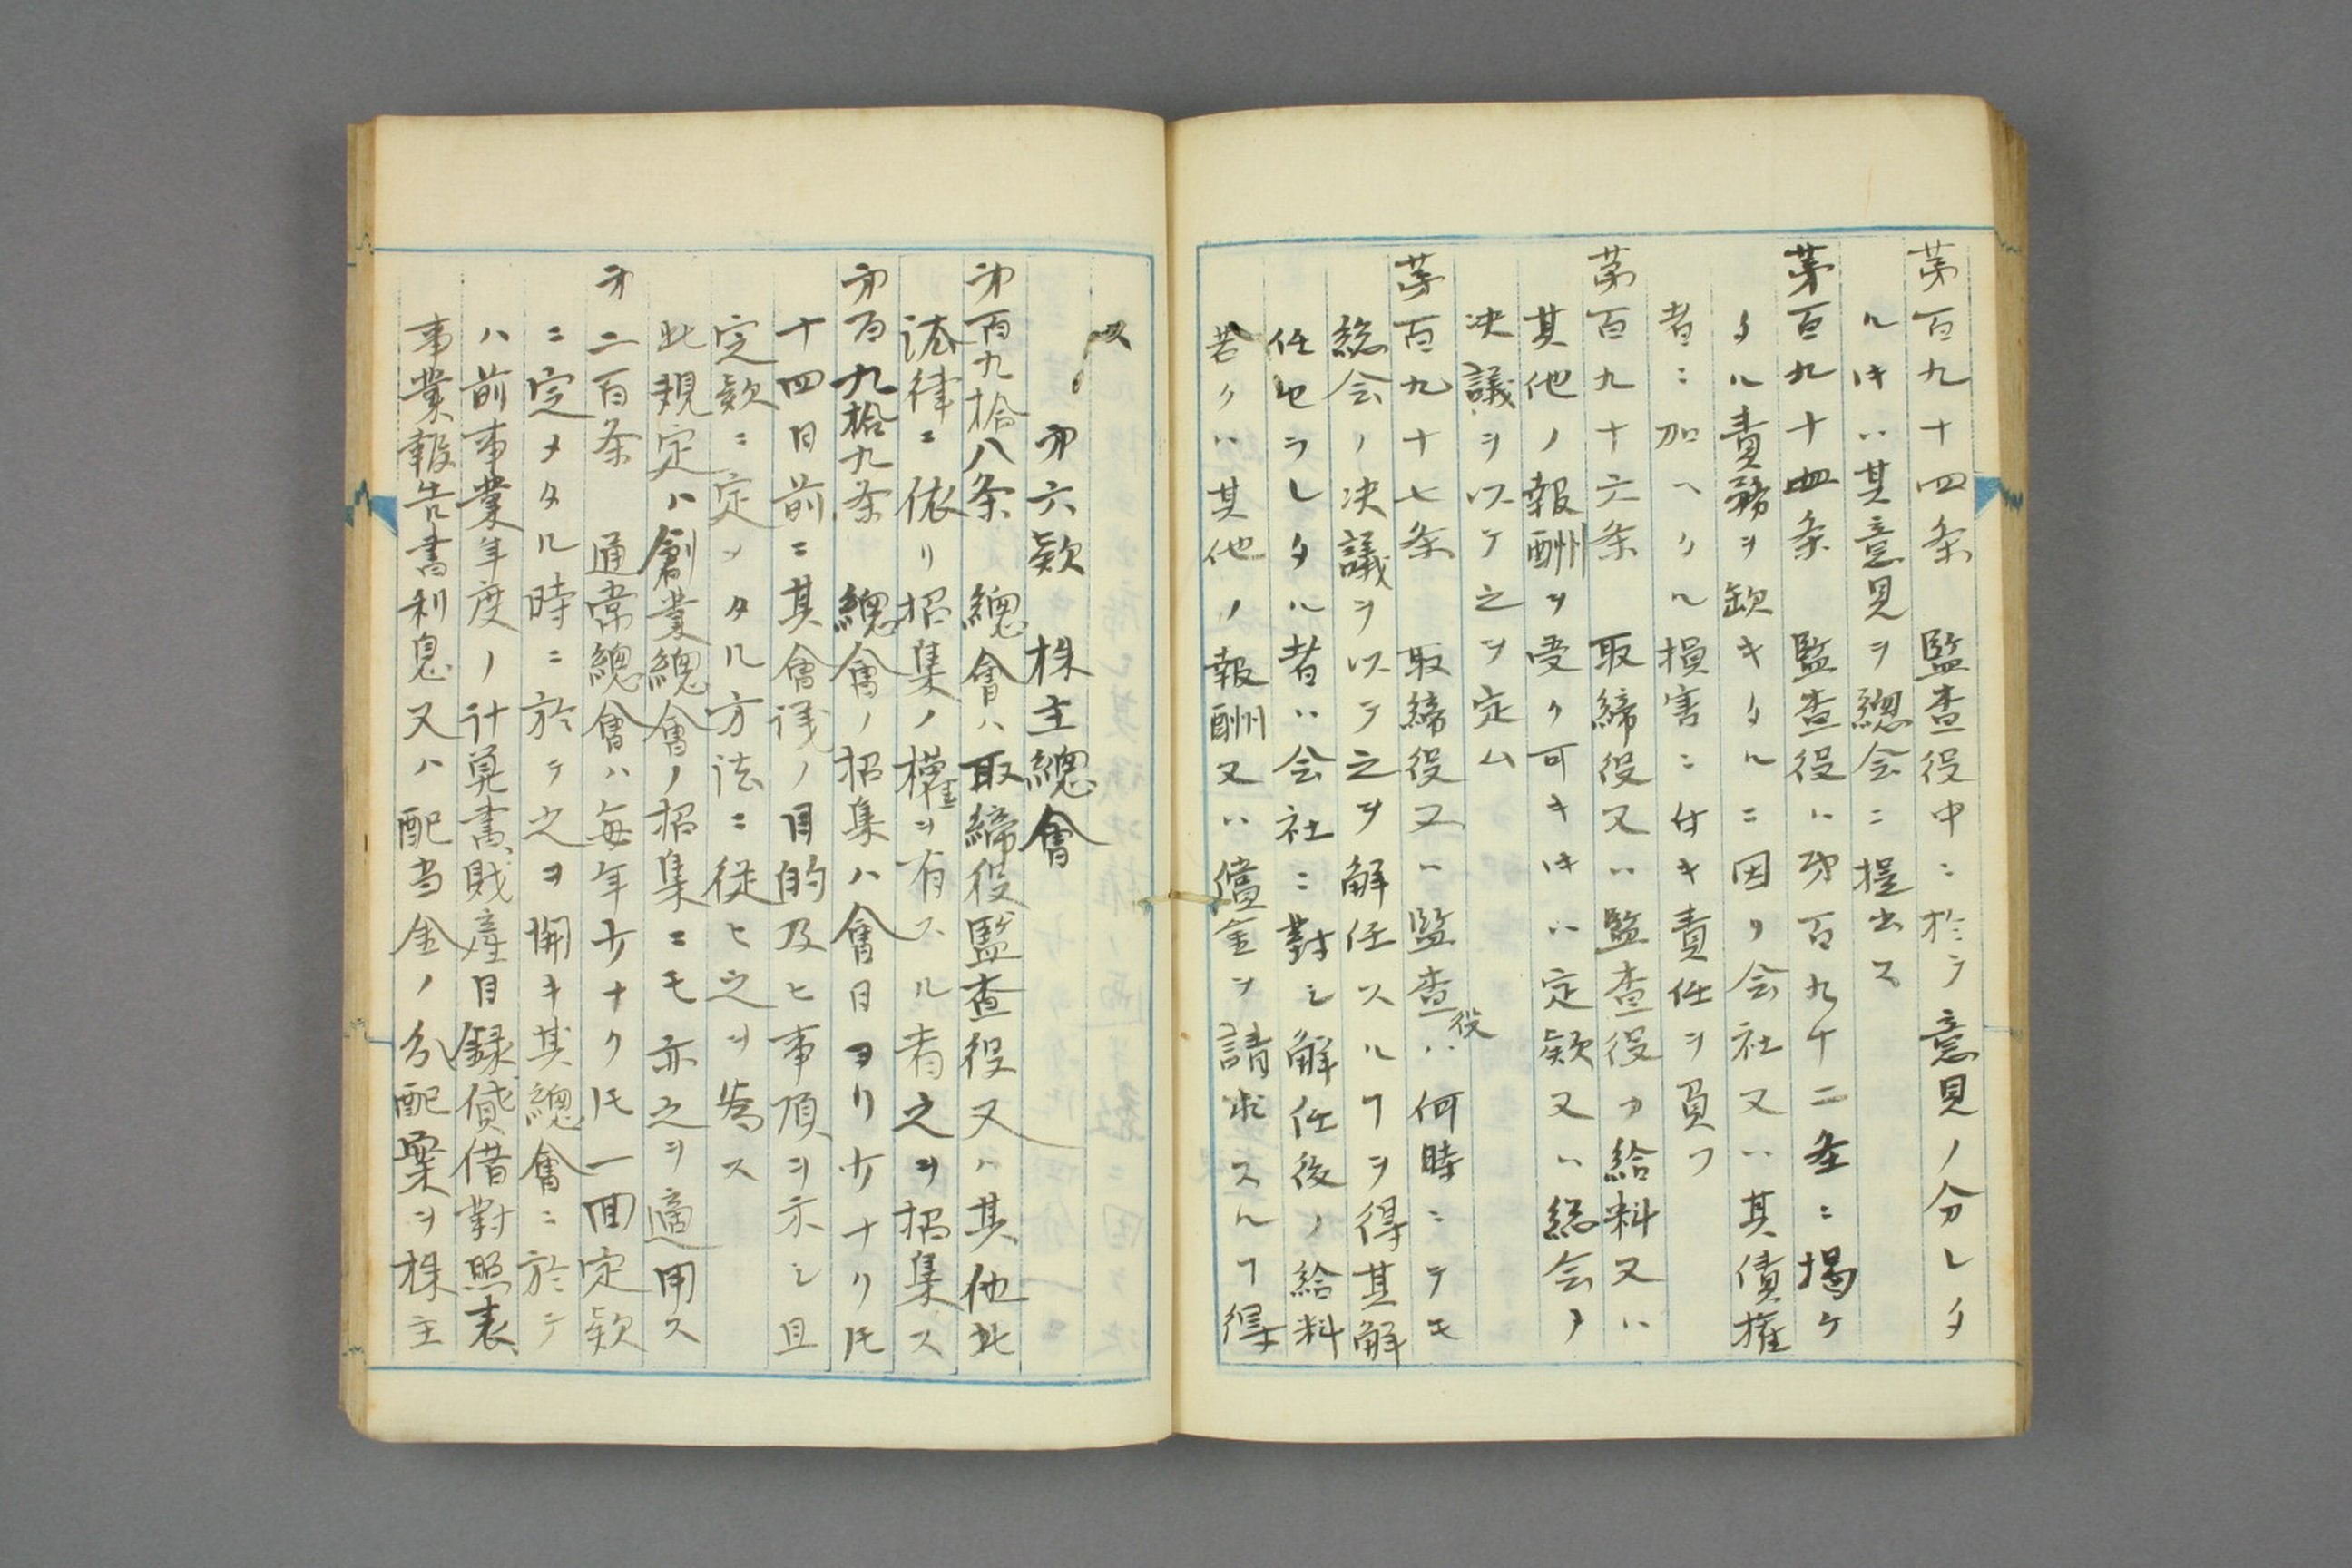 第百九十四条　監査役中ニ於テ意見ノ分レタ
ルキハ其意見ヲ總会ニ提出ス
第百九十四条　監査役ハ第百九十二条ニ掲ケ
タル責務ヲ欽キタルニ因リ会社又ハ其債権
者ニ加ヘタル損害ニ付キ責任ヲ負フ
第百九十六条　取締役又ハ監査役カ給料又ハ
其他ノ報酬ヲ受ク可キキハ定款又ハ総会ノ
决議ヲ以テ之ヲ定ム
第百九十七条　取締役又ハ監査役ハ何時ニテモ
総会ノ决議ヲ以テ之ヲ解任スルヿヲ得其解
任セラレタル者ハ会社ニ對シ解任後ノ給料
若クハ其他ノ報酬又ハ償金ヲ請求スルヿ得
ス
第六款　株主總會
第百九拾八条　總會ハ取締役監査役又ハ其他此
法律ニ依リ招集ノ權ヲ有スル者之ヲ招集ス
第百九拾九条　總會ノ招集ハ會日ヨリ少ナクモ
十四日前ニ其會議ノ目的及ヒ事項ヲ示シ且
定款ニ定メタル方法ニ従ヒ之ヲ為ス
此規定ハ創業總會ノ招集ニモ亦之ヲ適用ス
第二百条　通常總會ハ毎年少ナクモ一回定款
ニ定メタル時ニ於テ之ヲ開キ其總會ニ於テ
ハ前事業年度ノ計算書財産目録貸借對照表
事業報告書利息又ハ配当金ノ分配案ヲ株主